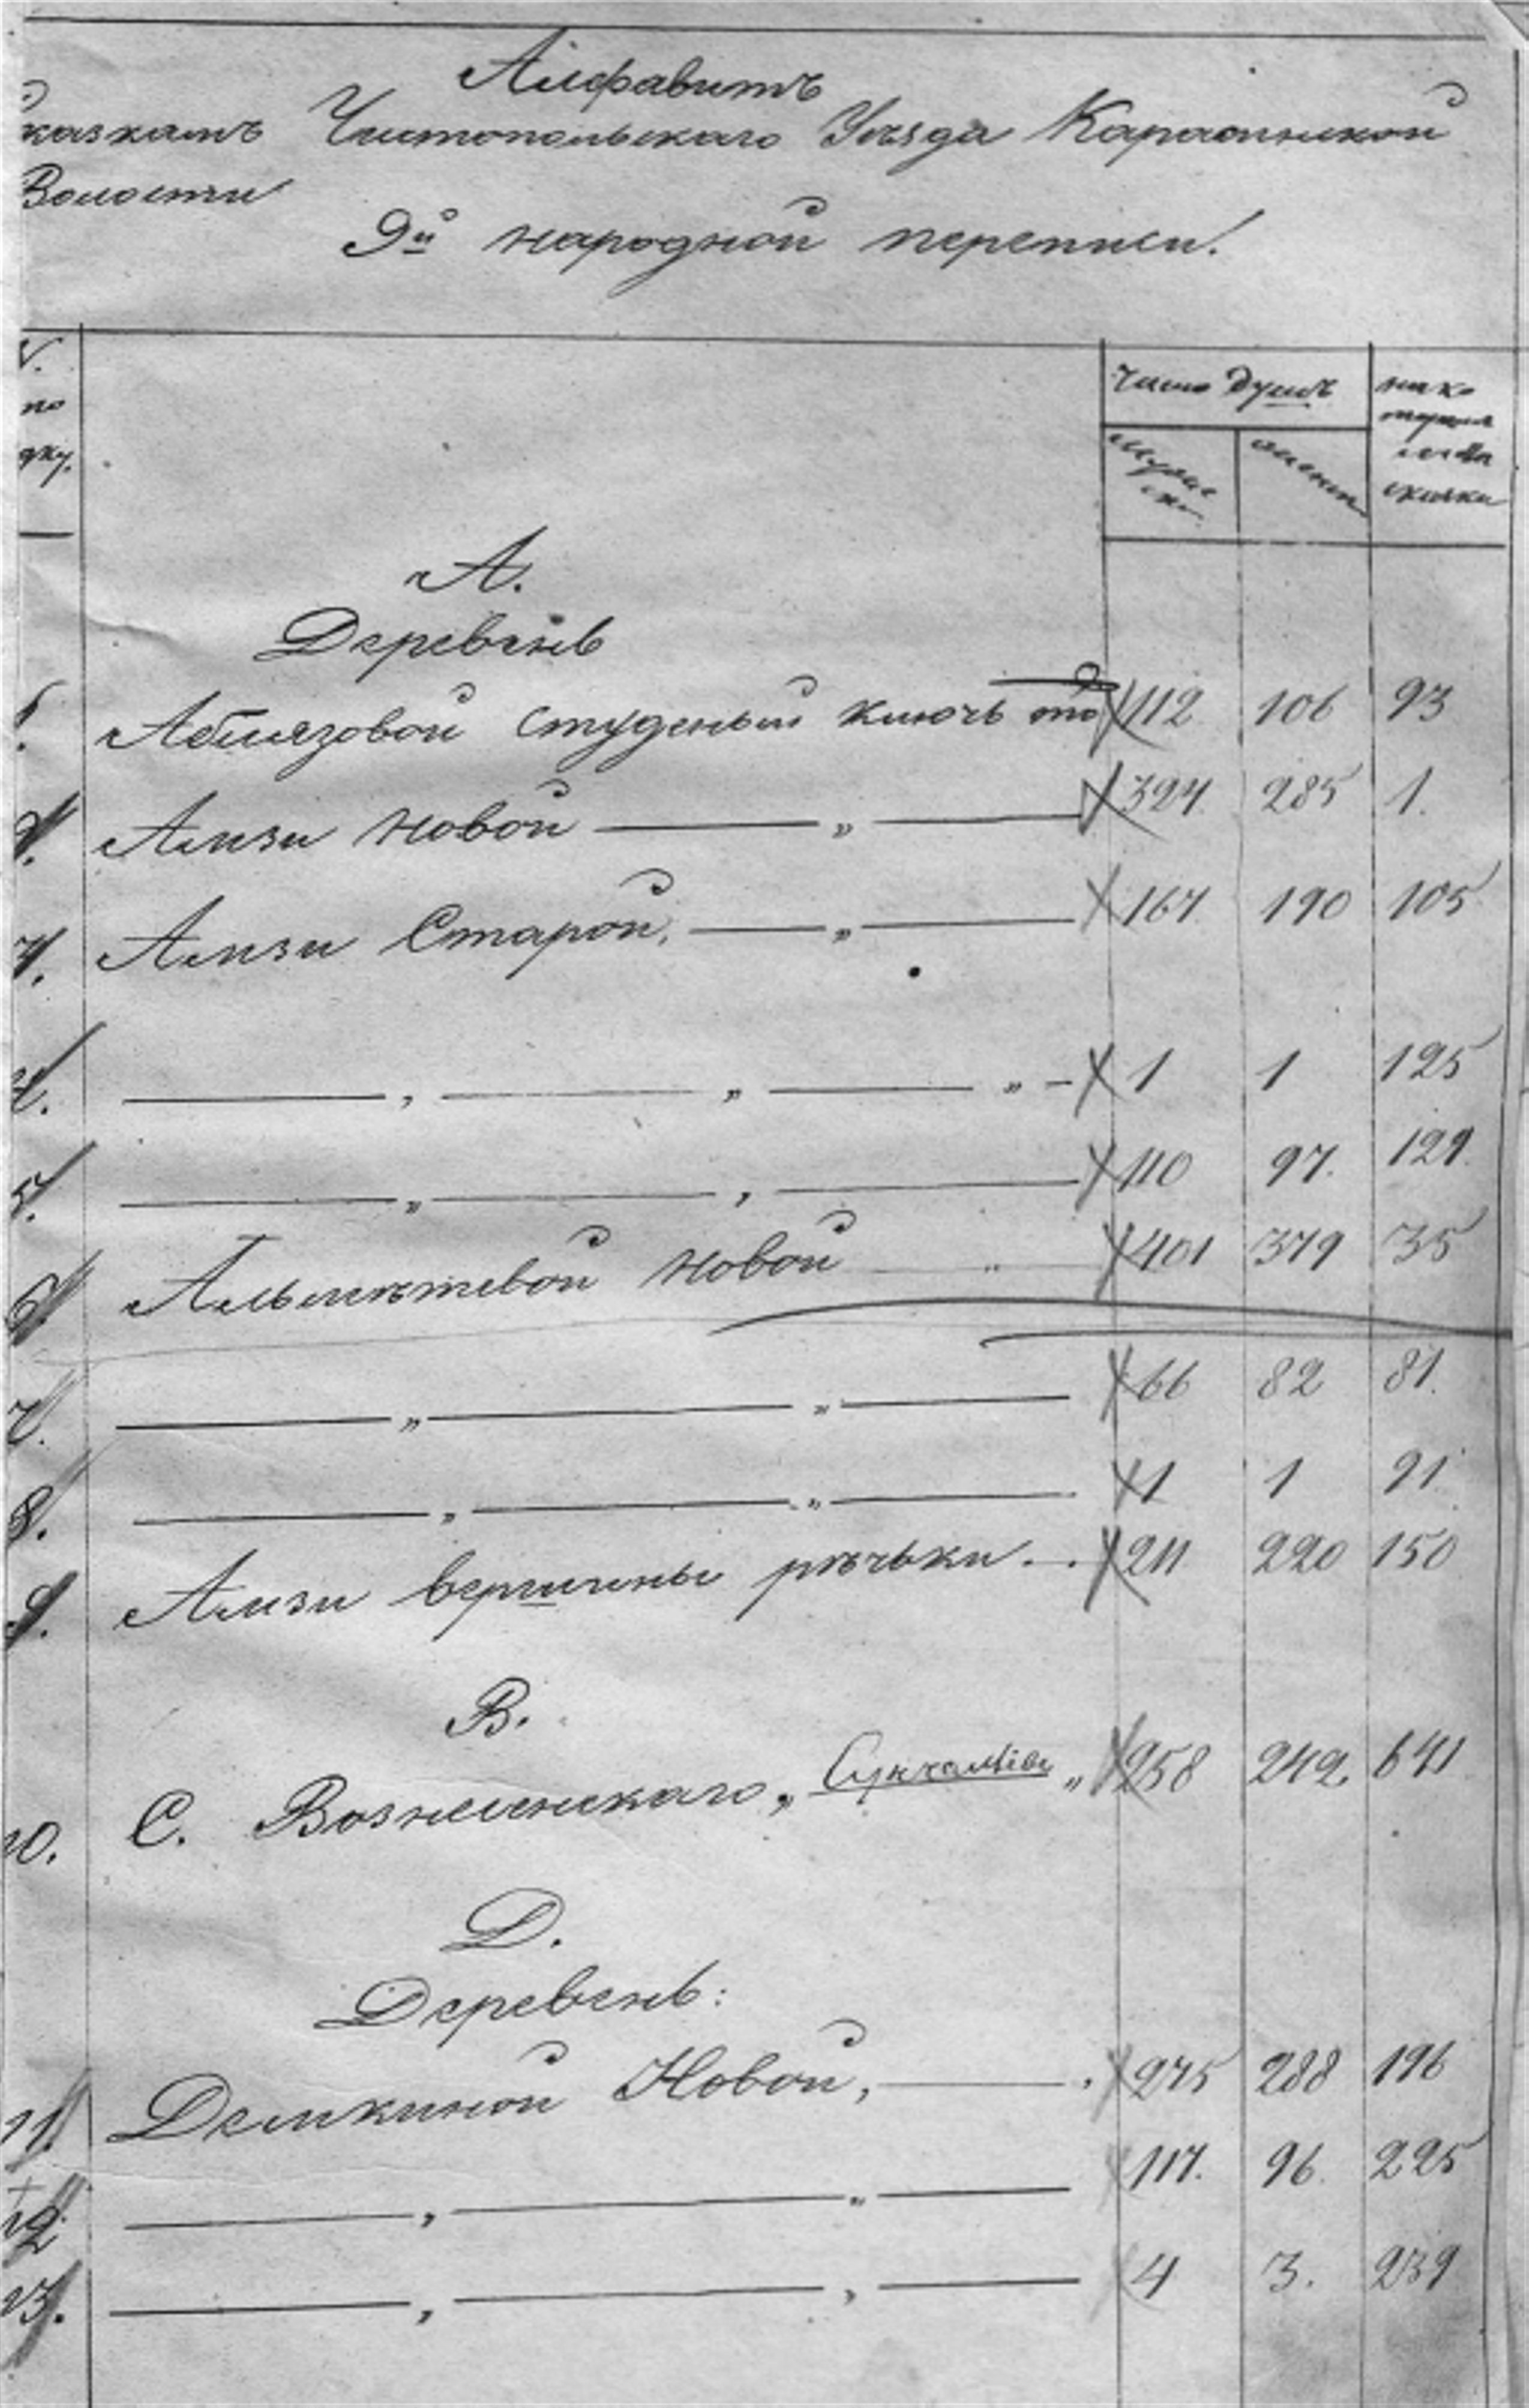 Алфавитъ
сказкамъ Чистопольскаго Уѣзда
Волости
9й народной переписи.
№.
по
дку.
Число душъ
мужес
ка.
женск.
на ко
торомъ
листѣ
сказка
А.
Деревень
1. Аблязовой студеный ключь тожъ 112 106 93
2. Амзи Новой — „ — 324 285 1.
3. Амзи Старой, — „ — 167 190 105
4. — , — „ — „ — 1 1 125
5. — „ — , — 110 97. 129.
6. Альметевой Новой — „ — 401 379 35
7. — „ — „ — 66 82 81.
8. — , — „ — 1 1 91
9. Амзи вершины рѣчьки. — . 211 220 150
В.
10. С. Вознесенскаго „ „ 258 242. 641
Д.
Деревень:
11. Демкиной Новой, — . 275 288 196
12. — , — „ — 117. 96. 225
13. — , — , — 4 3. 239